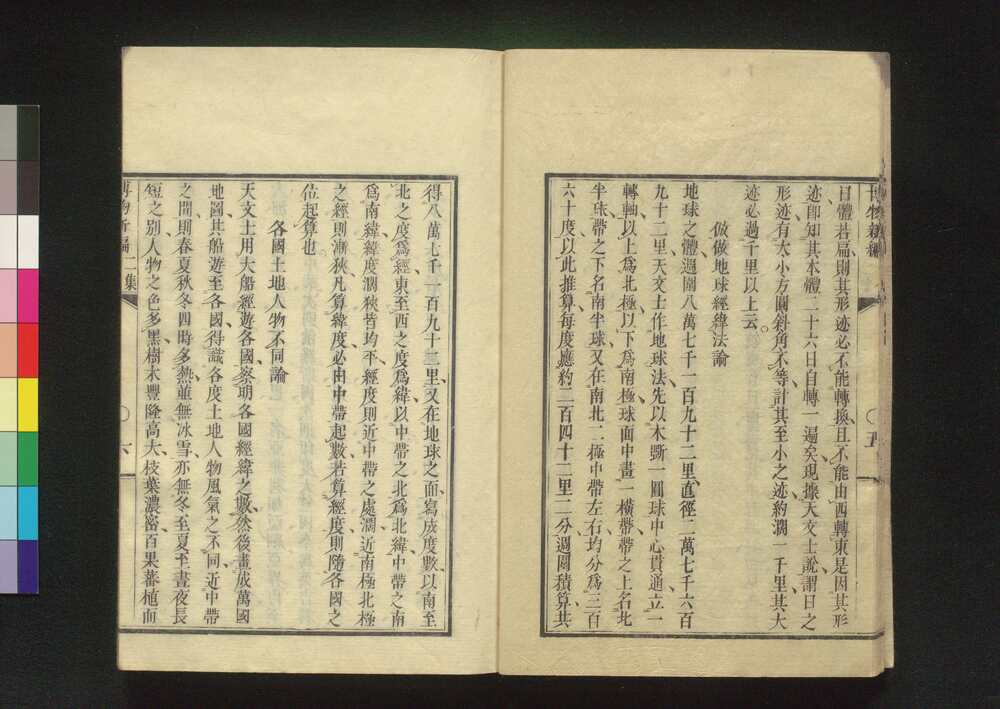 博物新編
日體若扁則其形迹必不能轉換且不能由西轉東是因其形
迹即知其本體二十六日自轉一遍矣現據天文士說謂日之
形迹有大小方圓斜角不等計其至小之迹約濶一千里其大
迹必過千里以上云
倣做地球經緯法論
地球之體週圍八萬七千一百九十二里直徑二萬七千六百
九十二里天文士作地球法先以木斲一圓球中心貫通立一
轉軸以上爲北極以下爲南極球面中畫一橫帶帶之上名北
半球帶之下名南半球又在南北二極中帶左右均分爲三百
六十度以此推算每度應約二百四十二里二分週圍積算共
五
得八萬七千一百九十二里又在地球之面寫成度數以南至
北之度爲經東至西之度爲緯以中帶之北爲北緯中帶之南
爲南緯緯度濶狹皆均平經度則近中帶之處濶近南極北極
之經則漸狹凡算緯度必由中帶起數若算經度則隨各國之
位起算也
各國土地人物不同論
天文士用大船經遊各國察明各國經緯之數然後畫成萬國
地圖其船遊至各國得識各度土地人物風氣之不同近中帶
之間則春夏秋冬四時多熱並無冰雪亦無冬至夏至晝夜長
短之別人物之色多黑樹木豐隆高大枝葉濃密百果蕃植而
博物新編二集
六